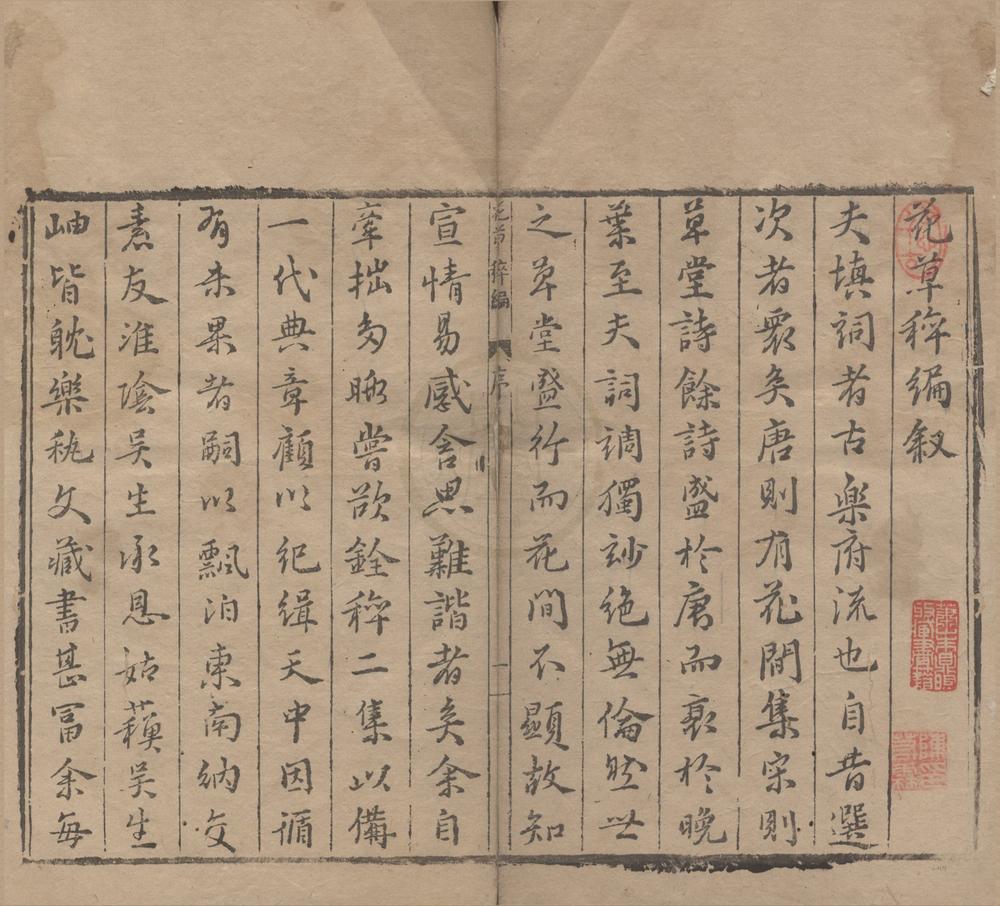 花草稡編叙
夫填詞者古樂府流也自昔選
次者衆矣唐則有花間集宋則
草堂詩餘詩盛於唐而衰於晚
葉至夫詞調獨妙絶無倫然世
之草堂盛行而花間不顯故知
宣情易感含思難諧者矣余自
牽拙多暇嘗欲銓稡二集以備
一代典章顧以紀緝天中因循
有未果者嗣以飄泊東南納交
素友淮陰吳生承恩姑蘓吳生
岫皆躭樂秇文藏書甚冨余每
花草稡編 序 一